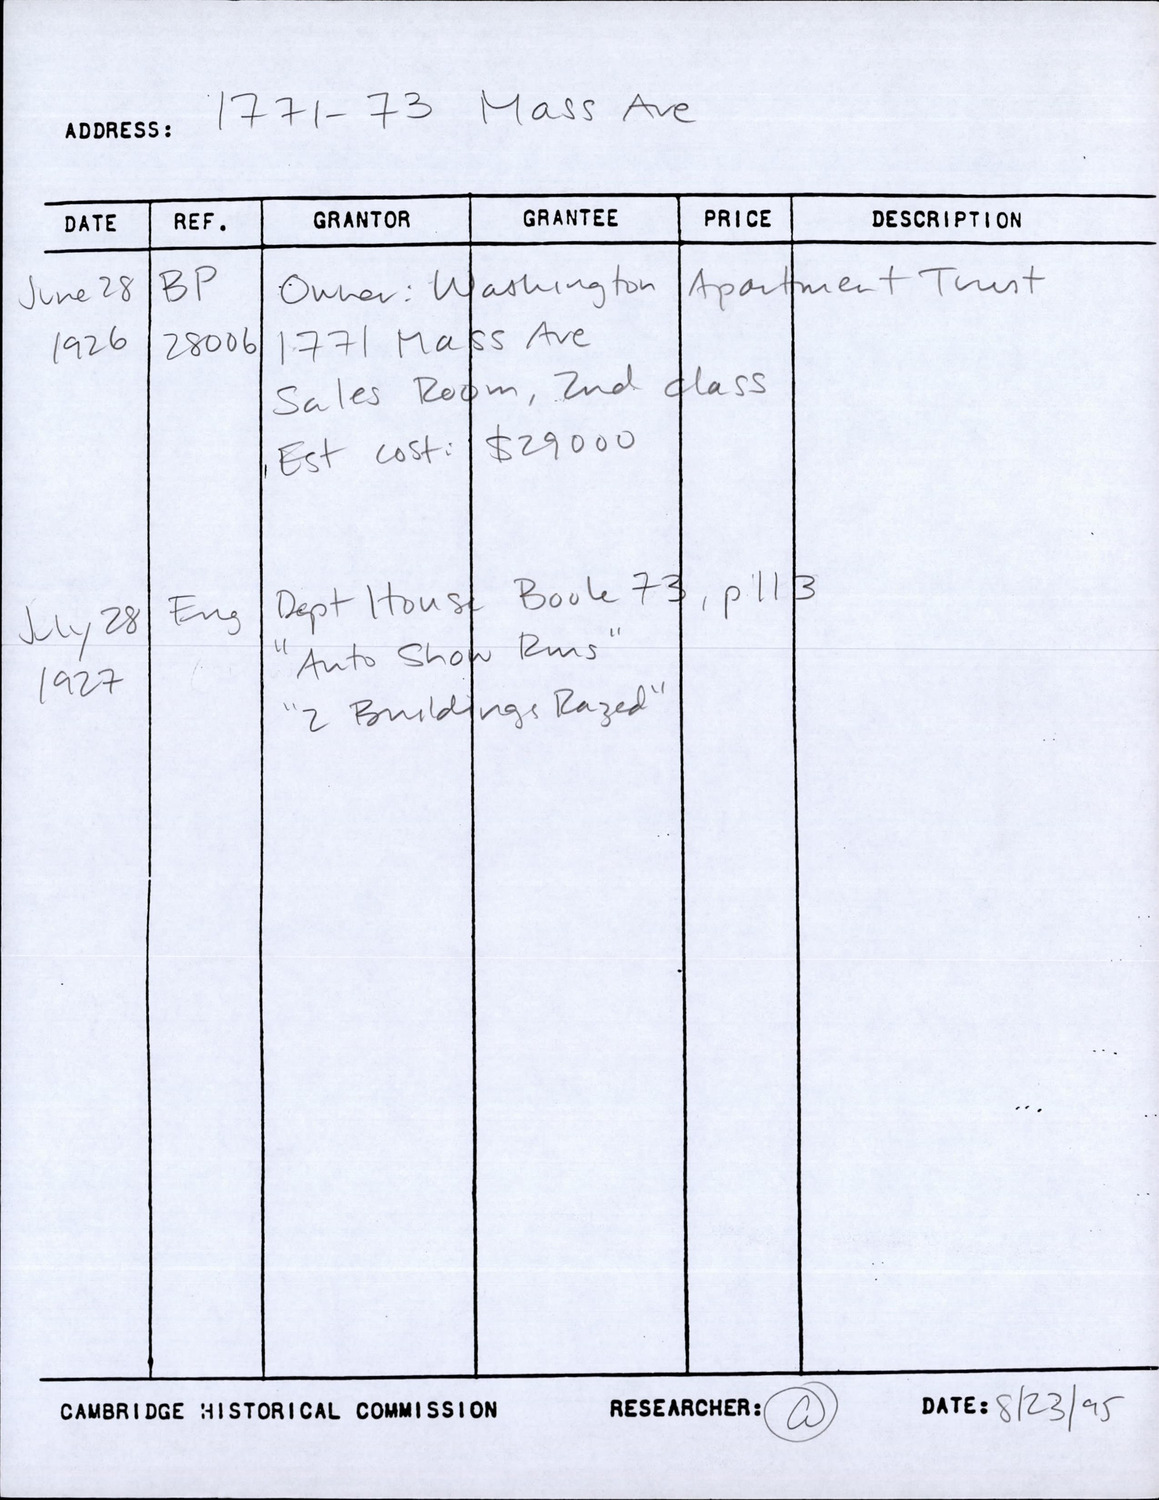 ADDRESS: 1771-73 Mass Ave
DATE REF. GRANTOR GRANTEE PRICE DESCRIPTION
June 28 BP Owner: Washington Apartment Trust
1926 28006 1771 Mass Ave
Sales Room, 2nd class
Est cost: $29000
July 28 Eng Dept House Book 73, p113
1927 "Auto Show Rms"
"2 Buildings Razed"
CAMBRIDGE HISTORICAL COMMISSION RESEARCHER: DATE: 8/23/95